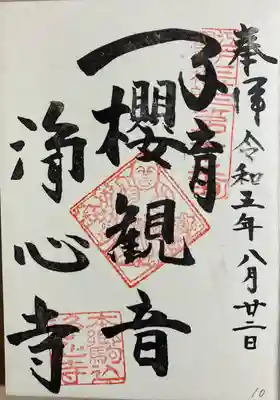 奉拝 令和五年八月廿二日
子育
櫻観音
浄心寺
10